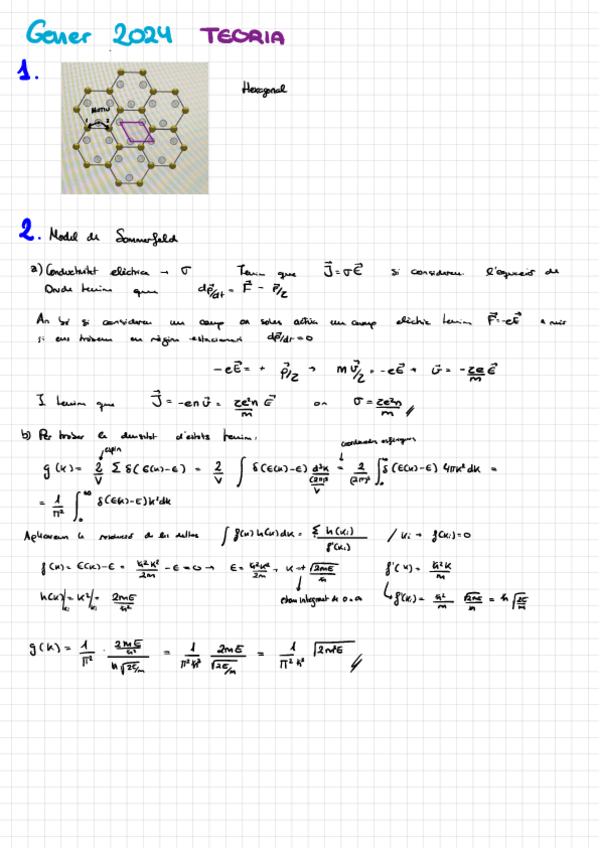 Gener 2024 TEORIA
1.
Hexagonal
MOTIU
1 2
2. Model de Sommerfeld
a) Conductivitat elèctrica → σ Tenim que J⃗=σE⃗ si considerem l'equació de
Drude tenim que dp⃗/dt = F⃗ - p⃗/τ
si considerem un camp on actua un camp elèctric tenim F⃗=-eE⃗ a més
si ens trobem en règim estacionari dp⃗/dt=0
-eE⃗ = + p⃗/τ → m v⃗/τ = -eE⃗ → v⃗ = -τe/m E⃗
I tenim que J⃗ = -env⃗ = τe²n/m E⃗ on σ = τe²n/m
b) Per trobar la densitat d'estats tenim:
espín
coordenades esfèriques
g(ε) = 2/V Σ δ(ε(k)-ε) = 2/V ∫ δ(ε(k)-ε) d³k/((2π)³/V) = 2/(2π)³ ∫₀^∞ δ(ε(k)-ε) 4πk² dk =
= 1/π² ∫₀^∞ δ(ε(k)-ε) k² dk
Apliquem la de les deltes ∫ f(x) h(x) dx = Σ h(xi)/f'(xi) / xi → f(xi)=0
f(k) = ε(k)-ε = ħ²k²/2m - ε = 0 → ε = ħ²k²/2m , k = + √2mε/ħ f'(k) = ħ²k/m
integrant de 0 a ∞
h(k)|ki = k²|ki = 2mε/ħ² f'(ki) = ħ²/m √2mε/ħ = ħ √2ε/m
g(k) = 1/π² · (2mε/ħ²)/(ħ√2ε/m) = 1/π²ħ³ 2mε/√2ε/m = 1/π²ħ³ √2m³ε